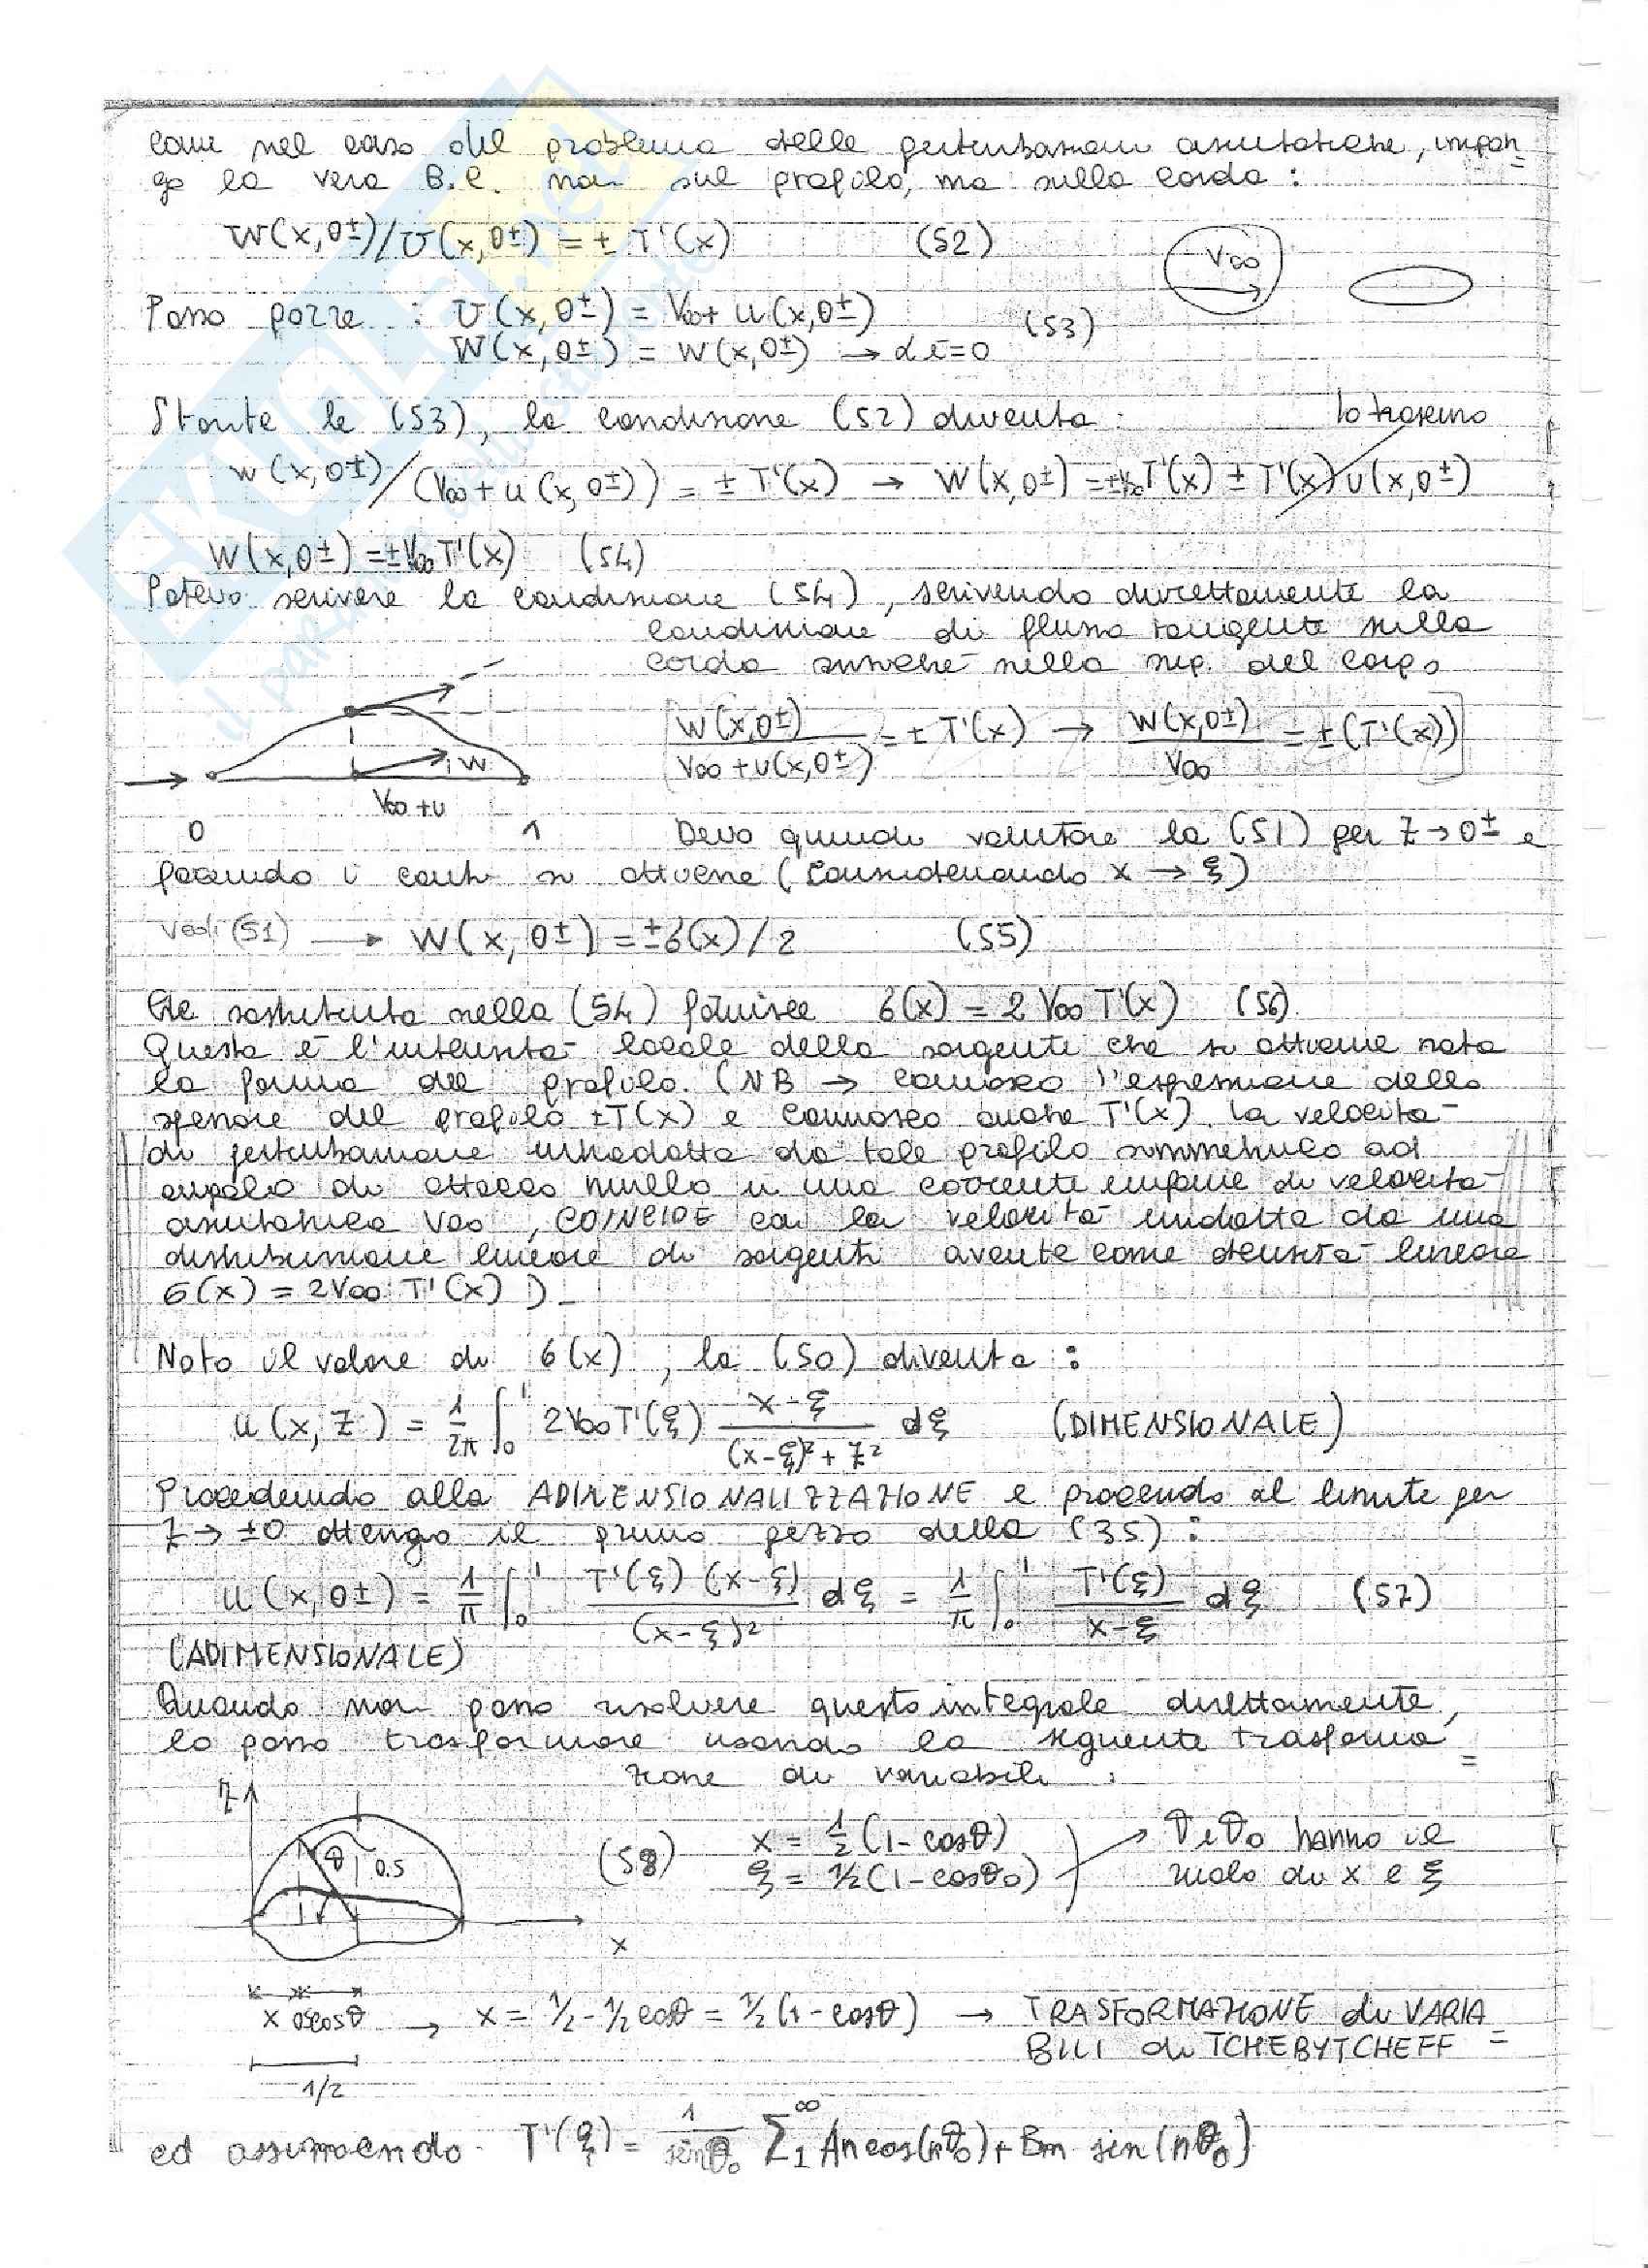 come nel caso del problema delle perturbazioni asintotiche, impon=
go la vera B.C. non sul profilo, ma sulla corda :
W(x,0±)/U(x,0±) = ± T'(x) (52)
V∞
Posso porre : U(x,0±) = V∞ + u(x,0±)
W(x,0±) = w(x,0±) → α è = 0 (53)
Stante le (53), la condizione (52) diventa :
lo trascuro
w(x,0±)/(V∞ + u(x,0±)) = ± T'(x) → W(x,0±) = ±V∞T'(x) ± T'(x)u(x,0±)
W(x,0±) = ±V∞T'(x) (54)
Potevo scrivere la condizione (54), scrivendo direttamente la
condizione di flusso tangente sulla
corda anziché sulla sup. del corpo
[W(x,0±)/(V∞ + u(x,0±)) = ± T'(x) → W(x,0±)/V∞ = ±(T'(x))]
W
V∞+u
0 1 Devo quindi valutare la (51) per Z→0± e
facendo i conti si ottiene (considerando x → ξ)
Vedi (51) → W(x,0±) = ±σ(x)/2 (55)
Che sostituita nella (54) fornisce σ(x) = 2V∞T'(x) (56).
Questa è l'intensità locale della sorgente che si ottiene nota
la forma del profilo. (NB → conosco l'espressione dello
spessore del profilo ±T(x) e conosco anche T'(x). La velocità
di perturbazione introdotta da tale profilo simmetrico ad
angolo di attacco nullo in una corrente uniforme di velocità
asintotica V∞, COINCIDE con la velocità indotta da una
distribuzione lineare di sorgenti avente come densità lineare
σ(x) = 2V∞ T'(x) ).
Noto il valore di σ(x), la (50) diventa :
u(x,z) = 1/2π ∫₀¹ 2V∞T'(ξ) (x-ξ)/((x-ξ)²+z²) dξ (DIMENSIONALE)
Procedendo alla ADIMENSIONALIZZAZIONE e facendo il limite per
z→±0 ottengo il primo pezzo della (35) :
u(x,0±) = 1/π ∫₀¹ T'(ξ)(x-ξ)/(x-ξ)² dξ = 1/π ∫₀¹ T'(ξ)/(x-ξ) dξ (57)
(ADIMENSIONALE)
Quando non posso risolvere questo integrale direttamente,
lo posso trasformare usando la seguente trasforma=
zione di variabili :
z
θ 0.5
x
(58) x = 1/2 (1-cosθ)
ξ = 1/2 (1-cosθ₀)
→ θ e θ₀ hanno il
ruolo di x e ξ
x 0.5cosθ → x = 1/2 - 1/2 cosθ = 1/2 (1-cosθ) → TRASFORMAZIONE di VARIA=
BILI di TCHEBYTCHEFF
1/2
ed assumendo T'(ξ) = 1/sinθ₀ Σ₁^∞ An cos(nθ₀) + Bn sin(nθ₀)